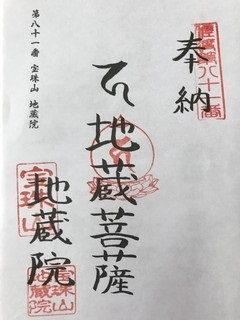 奉納
地蔵菩薩
地蔵院
宝珠山
宝珠山
地蔵院
第八十一番 宝珠山 地蔵院